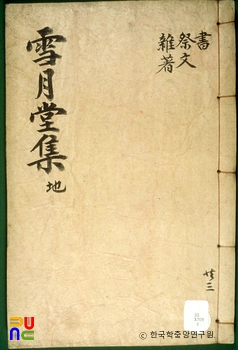 書
祭文
雜著
雪月堂集 地
共三
PUNC
© 한국학중앙연구원